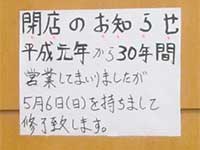 閉店のお知らせ
平成元年から30年間
営業してまいりましたが
5月6日(日)を持ちまして
修了致します。